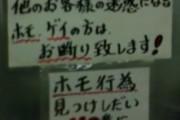 他のお客様の迷惑になる
ホモ、ゲイの方は、
お断り致します!
ホモ行為
見つけしだい